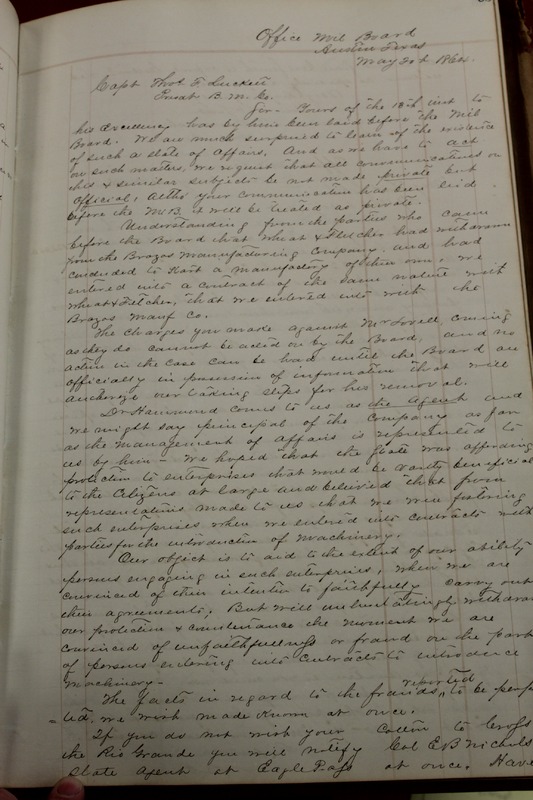 Office Mil Board
Austin Texas
May 20th 1864.
Capt Thos F. Luckett
Presdt B. M. Co.
Sir. Yours of the 18th inst to
his Excellency has by him been laid before the Mil
Board. We are much surprised to learn of the existence
of such a state of affairs. And as we have to act
on such matters, we request that all communications on
this & similar subjects be not made private but
official, Altho your communication has been laid
before the M.B. it will be treated as private.
Understanding from the parties who came
before the Board that Wheat & Fletcher had withdrawn
from the Brazos Manufacturing Company, and had
concluded to start a manufactory of their own, we
entered into a contract of the same nature with
Wheat & Fletcher, that we entered into with the
Brazos Manf Co.
The charges you made against Mr Lovell, coming
as they do cannot be acted on by the Board, and no
action in the case can be had until the Board are
officially in possession of information that will
authorize our taking steps for his removal.
Dr Hammond comes to us as the Agent and
we might say principal of the Company as far
as the management of affairs is represented to
us by him - We hoped that the State was affording
protection to enterprises that would be vastly beneficial
to the Citizens at large and believed that from
representations made to us, that we were fostering
such enterprises when we entered into contracts with
parties for the introduction of Machinery.
Our object is to aid to the extent of our ability
persons engaging in such enterprises, when we are
convinced of their intention to faithfully carry out
their agreements; But will unhesitatingly withdraw
our protection & countenance the moment we are
convinced of unfaithfullness or fraud on the part
of persons entering into contracts to introduce
Machinery -
The facts in regard to the frauds, reported to be perpe
= ted. we wish made known at once.
If you do not wish your Cotton to cross
the Rio Grande you will notify Col E B Nichols
State Agent at Eagle Pass at once. Have